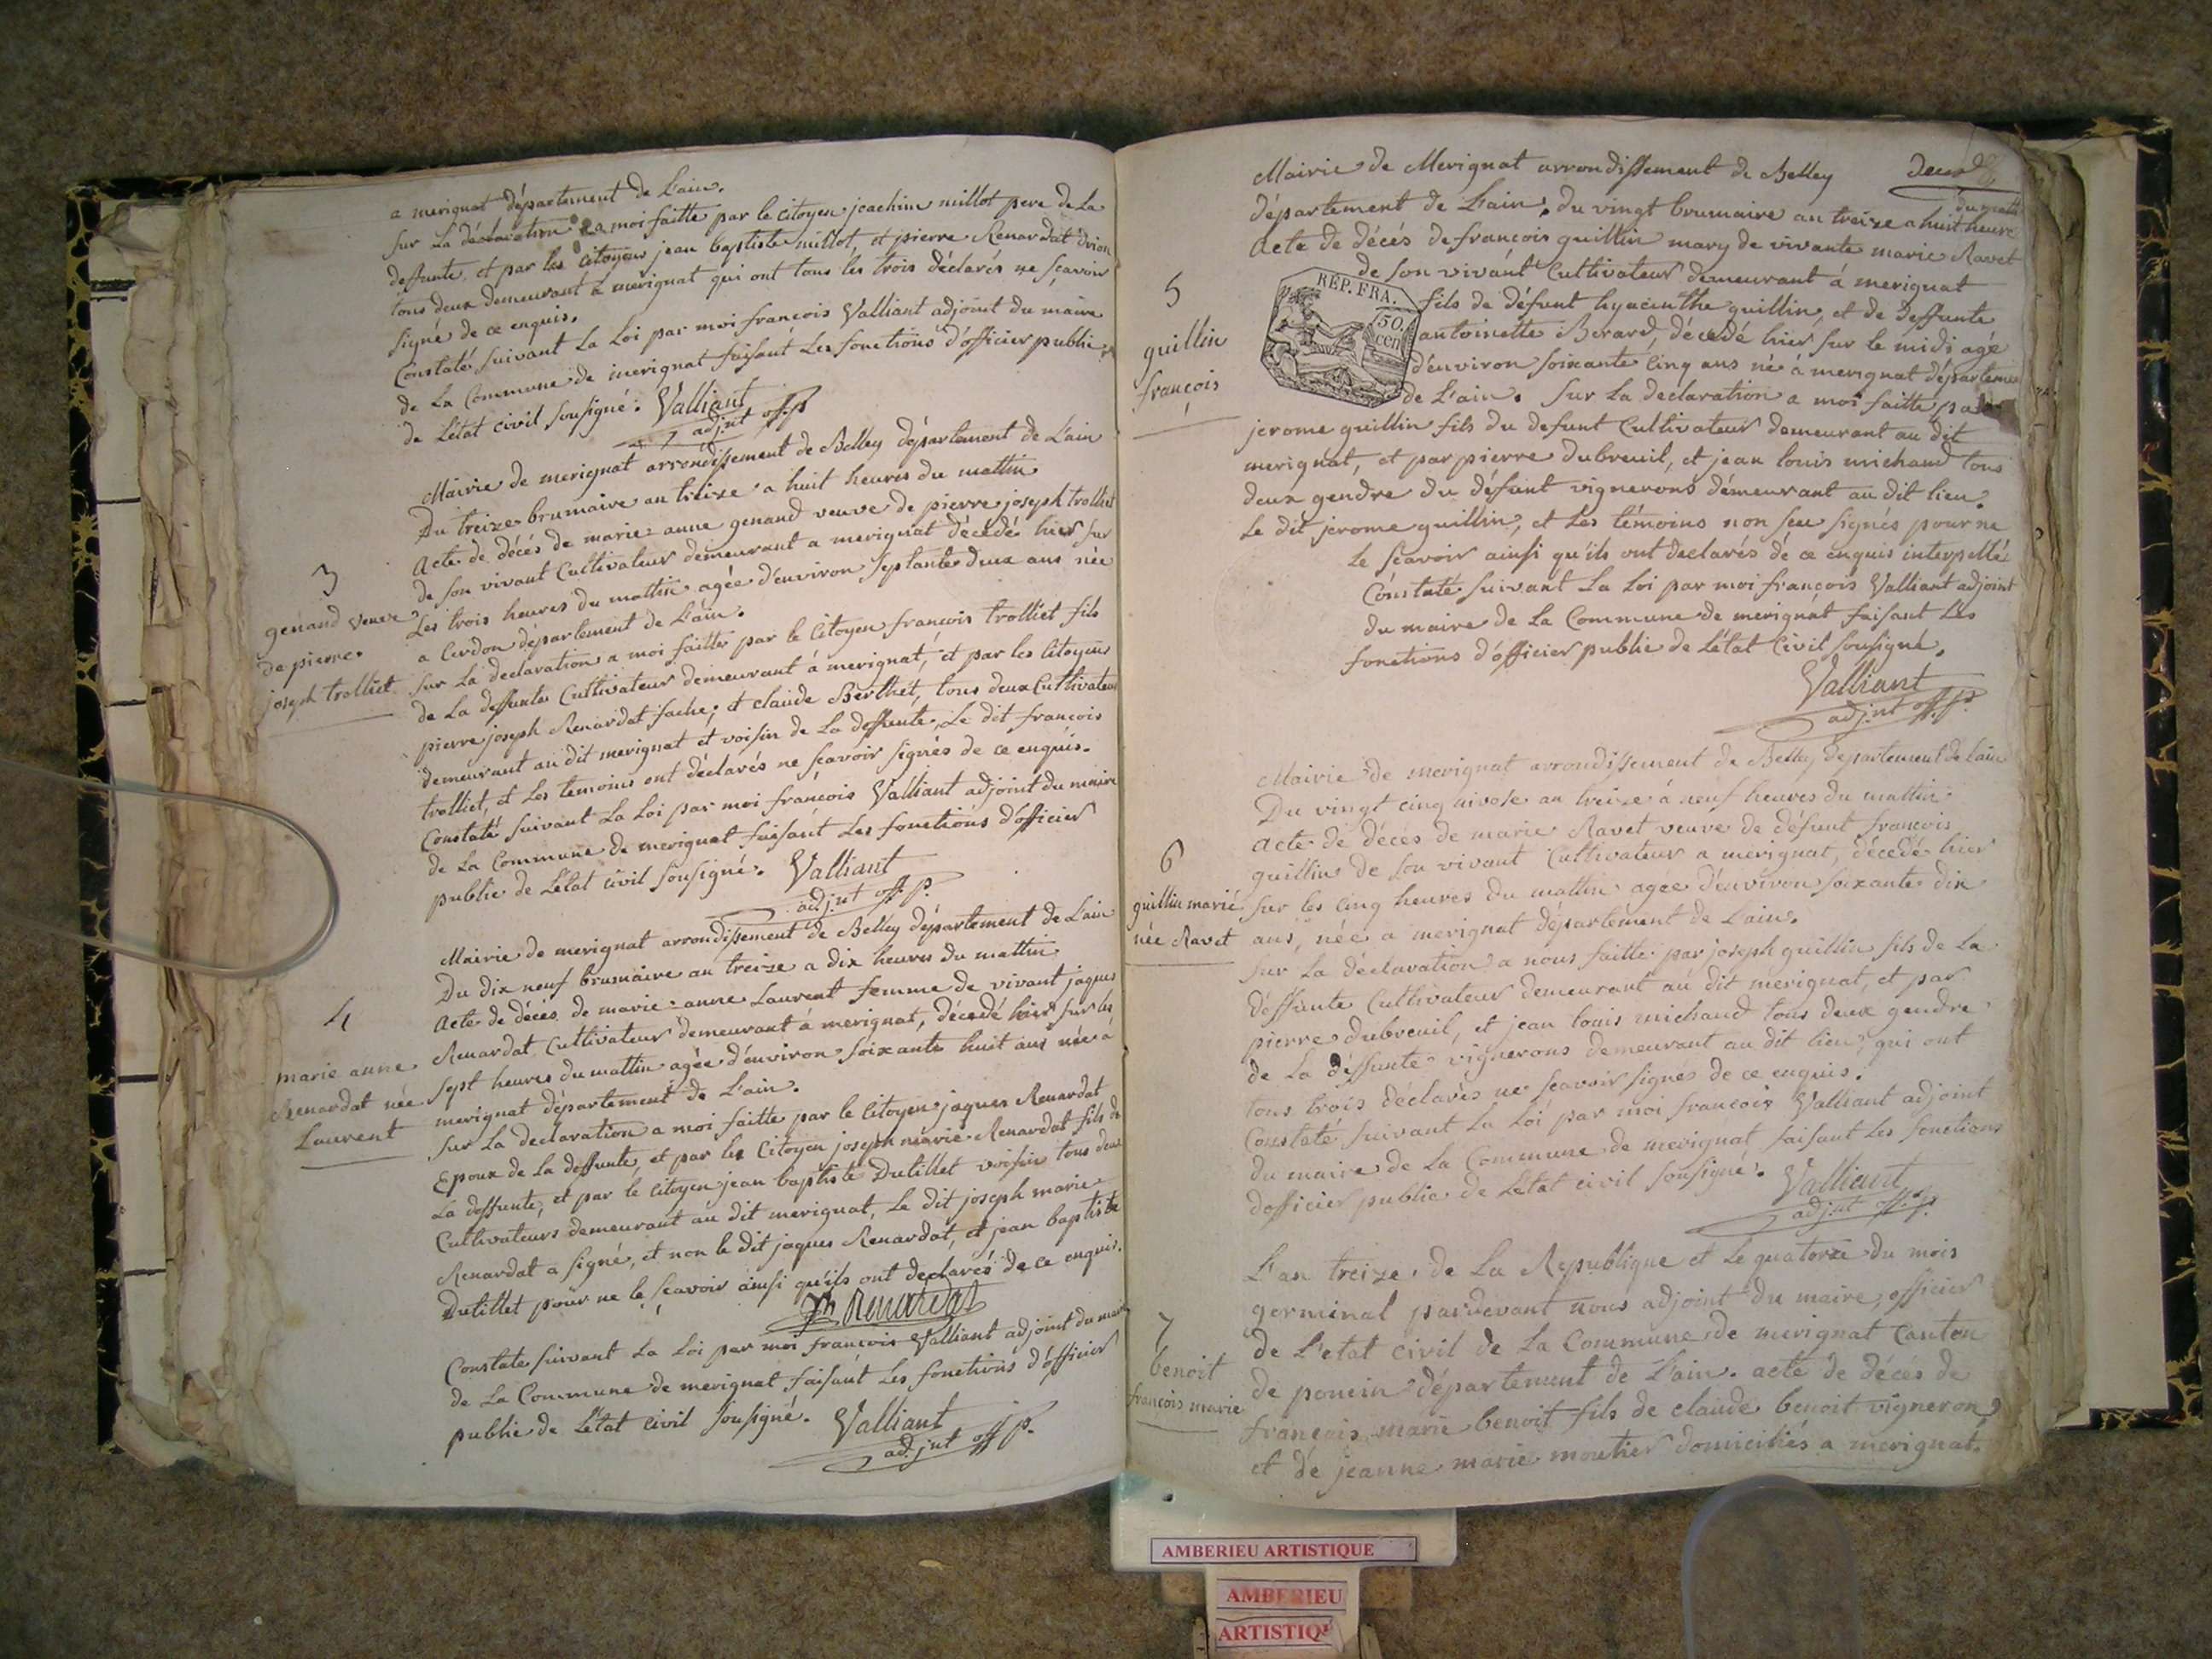 a merignat département de L'ain.
sur La déclaration a moi faitte par le Citoyen joachim millot pere de La
deffunte, et par les Citoyens jean baptiste millot, et pierre Renardat
tous deux demeurant à merignat qui ont tous les trois déclarés ne sçavoir
signé de ce enquis.
Constaté suivant La Loi par moi françois Valliant adjoint du maire
de La Commune de merignat faisant Les fonctions d'officier public
de L'état civil sousigné. Valliant
adjnt off. p
Mairie de merignat arrondissement de Belley département de L'ain
Du treize brumaire an treize a huit heures du mattin
Acte de décés de marie anne genand veuve de pierre joseph trolliet
de son vivant Cultivateur demeurant a merignat décédé hier sur
Les trois heures du mattin agée d'environ septante deux ans née
a Cerdon département de L'ain.
Sur La declaration a moi faitte par le Citoyen françois trolliet fils
de La deffunte Cultivateur demeurant à merignat, et par les Citoyens
pierre joseph Renardat fache, et claude Berthet, tous deux Cultivateurs
demeurant au dit merignat et voisin de La deffunte, Le dit françois
trolliet, et Les temoins ont déclarés ne sçavoir signés de ce enquis.
Constaté suivant La Loi par moi françois Valliant adjoint du maire
de La Commune de merignat faisant Les fonctions d'officier
public de L'état civil sousigné. Valliant
adjnt off. p.
3
genand veuve
de pierre
joseph trolliet
Mairie de merignat arrondissement de Belley département de L'ain
Du dix neuf brumaire an treize a dix heures du mattin
Acte de décés de marie anne Laurent femme de vivant jaques
Renardat Cultivateur demeurant à merignat, décedé hier sur les
sept heures du mattin agée d'environ soixante huit ans née à
merignat département de L'ain.
Sur La declaration a moi faitte par le Citoyen jaques Renardat
Epoux de La deffunte, et par les Citoyen joseph marie Renardat fils de
La deffunte, et par le Citoyen jean baptiste Dutillet voisin tous deux
Cultivateurs demeurant au dit merignat, Le dit joseph marie
Renardat a signé, et non le dit jaques Renardat, et jean baptiste
Dutillet pour ne le sçavoir ainsi qu'ils ont declarés de ce enquis.
Jh Renardat
Constaté suivant La Loi par moi françois Valliant adjoint du maire
de La Commune de merignat faisant Les fonctions d'officier
public de L'état civil sousigné. Valliant
adjnt off p.
4
marie anne
Renardat née
Laurent
deux
Mairie de Merignat arrondissement de Belley
département de L'ain, du vingt brumaire an treize a huit heure
du matin
Acte de décés de françois guillin mary de vivante marie Ravet
de son vivant Cultivateur demeurant á merignat
fils de défunt hyacinthe guillin, et de deffunte
antoinette Berard, décedé hier sur le midi agé
d'environ soixante cinq ans né á merignat départeme
de L'ain. Sur La declaration a moi faitte pa
jerome guillin fils du defunt Cultivateur demeurant au dit
merignat, et par pierre Dubreuil, et jean louis michaud tous
deux gendre du défunt vignerons démeurant au dit lieu.
Le dit jerome guillin, et Les témoins non seu signés pour ne
le sçavoir ainsi qu'ils ont declarés de ce enquis interpellé
Constaté suivant La Loi par moi françois Valliant adjoint
du maire de La Commune de merignat faisant Les
fonctions d'officier public de L'état Civil sousigné.
Valliant
adjnt off. p.
RÉP. FRA.
50
cen
5
guillin
françois
Mairie de merignat arrondissement de Belley département de L'ain
Du vingt cinq nivose an treize à neuf heures du mattin
acte de décés de marie Ravet veuve de défunt françois
guillin de son vivant Cultivateur a merignat, décedé hier
sur les cinq heures du mattin agée d'environ soixante dix
ans, née a merignat département de L'ain.
Sur La déclaration a nous faitte par joseph guillin fils de La
déffunte Cultivateur demeurant au dit merignat, et par
pierre dubreuil, et jean louis michaud tous deux gendre
de La déffunte vignerons demeurant au dit lieu, qui ont
tous trois déclarés ne sçavoir signés de ce enquis.
Constaté suivant La Loi par moi françois Valliant adjoint
du maire de La Commune de merignat faisant Les fonctions
d'officier public de L'état civil sousigné. Valliant
adjnt off. p.
6
guillin marié
née Ravet
L'an treize de La Republique et Le quatorze du mois
germinal pardevant nous adjoint du maire, officier
de L'etat civil de La Commune de merignat Canton
de poncin département de L'ain. acte de décés de
françois marie benoit fils de claude benoit vigneron
et de jeanne marie moutier domiciliés a merignat.
7
benoit
françois marie
AMBERIEU ARTISTIQUE
AMBERIEU
ARTISTIQU